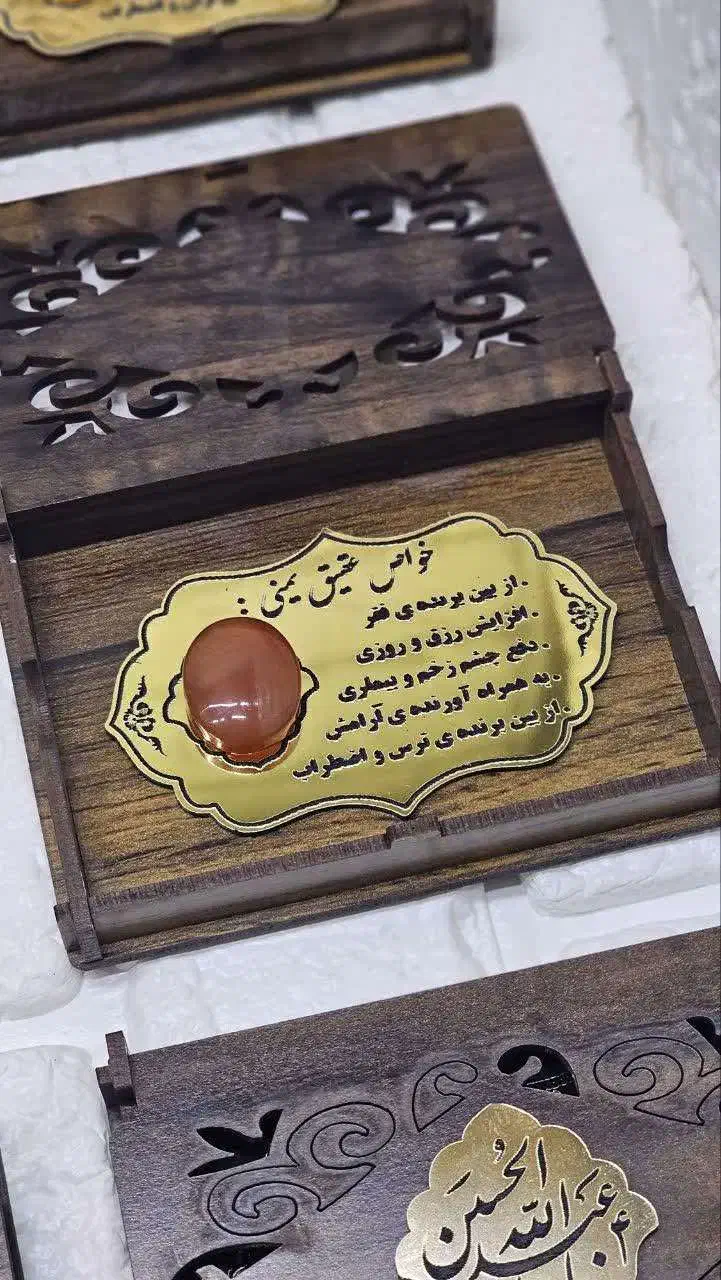 خواص عقیق یمنی :
.از بین برنده ی فقر
.افزایش رزق و روزی
.دفع چشم زخم و بیماری
.به همراه آورنده ی آرامش
.از بین برنده ی ترس و اضطراب
أعبدالله الحسین